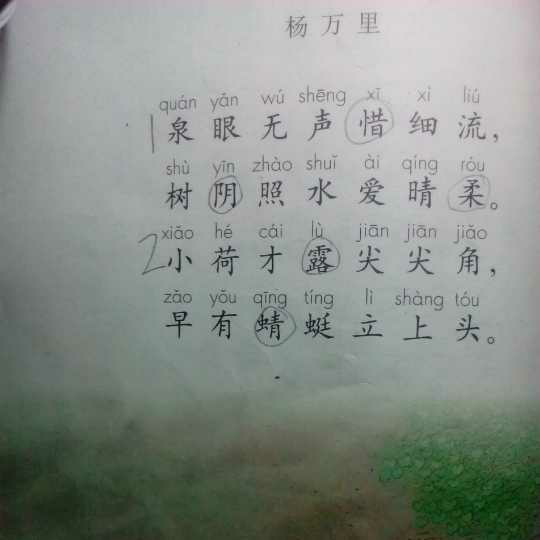 杨万里
quán yǎn wú shēng xī xì liú
1 泉眼无声惜细流，
shù yīn zhào shuǐ ài qíng róu
树阴照水爱晴柔。
xiǎo hé cái lù jiān jiān jiǎo
2 小荷才露尖尖角，
zǎo yǒu qīng tíng lì shàng tóu
早有蜻蜓立上头。